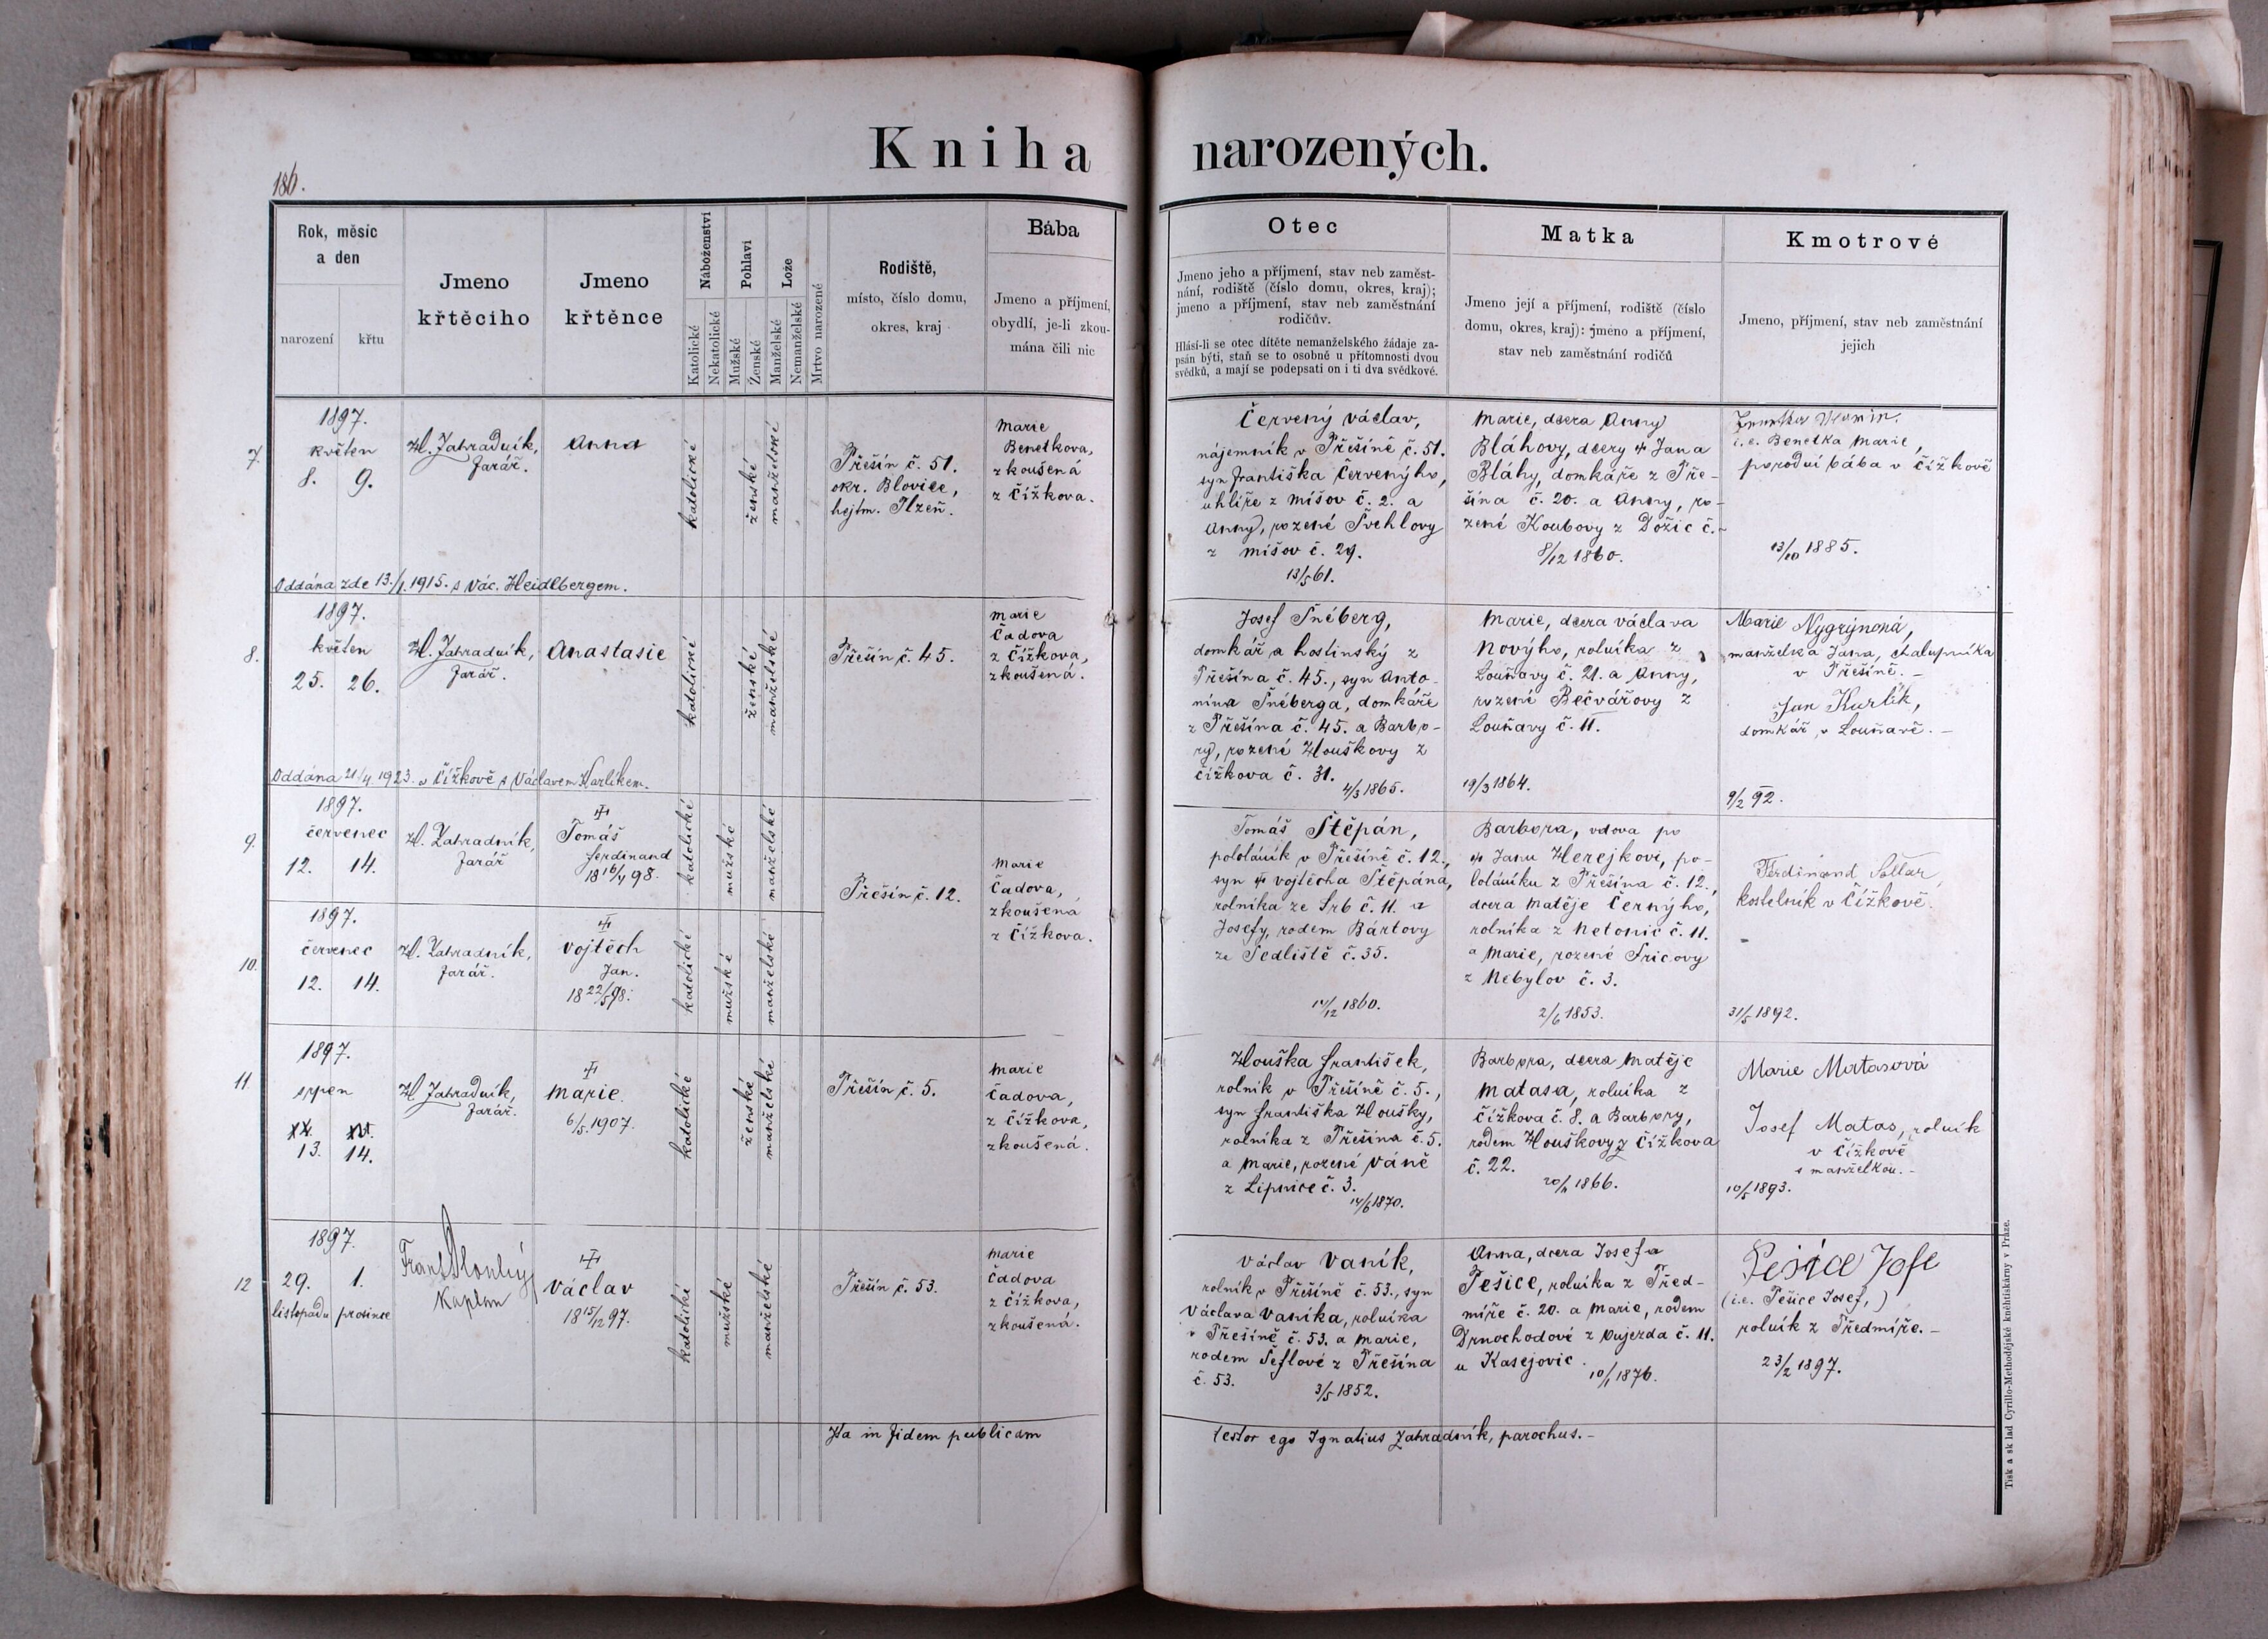 Kniha narozených.
186.
Rok, měsíc
a den
narození
křtu
Jmeno
křtěcího
Jmeno
křtěnce
Náboženství
Katolické
Nekatolické
Pohlaví
Mužské
Ženské
Lože
Manželské
Nemanželské
Mrtvo narozené
Rodiště,
místo, číslo domu,
okres, kraj
Bába
Jmeno a příjmení,
obydlí, je-li zkou-
mána čili nic
Otec
Jmeno jeho a příjmení, stav neb zaměst-
nání, rodiště (číslo domu, okres, kraj);
jmeno a příjmení, stav neb zaměstnání
rodičův.
Hlásí-li se otec dítěte nemanželského žádaje za-
psán býti, staň se to osobně u přítomnosti dvou
svědků, a mají se podepsati on i ti dva svědkové.
Matka
Jmeno její a příjmení, rodiště (číslo
domu, okres, kraj): jmeno a příjmení,
stav neb zaměstnání rodičů
Kmotrové
Jmeno, příjmení, stav neb zaměstnání
jejich
7.
1897.
květen
8. 9.
Zahradník,
farář.
Anna
katolické
ženské
manželské
Přešín č. 51.
okr. Blovice,
hejtm. Plzeň.
Marie
Benetkova,
zkoušená
z Čížkova.
Červený Václav,
nájemník v Přešíně č. 51.
syn Františka Červenýho,
uhlíře z Míšov č. 2. a
Anny, rozené Švehlovy
z Míšov č. 29.
13/5 61.
Marie, dcera Anny
Bláhovy, dcery † Jana
Bláhy, domkáře z Pře-
šína č. 20. a Anny, ro-
zené Koubovy z Dožic č. -
8/12 1860.
i.e. Benetka Marie,
porodní bába v Čížkově
13/10 1885.
Oddána zde 13./1. 1915. s Vác. Heidlbergem.
8.
1897.
květen
25. 26.
Zahradník,
farář.
Anastasie
katolické
ženské
manželské
Přešín č. 45.
Marie
Čadova
z Čížkova,
zkoušená.
Josef Šnéberg,
domkář a hostinský z
Přešína č. 45., syn Anto-
nína Šnéberga, domkáře
z Přešína č. 45. a Barbo-
ry, rozené Houškovy z
Čížkova č. 31.
4/3 1865.
Marie, dcera Václava
Novýho, rolníka z
Louňavy č. 21. a Anny,
rozené Bečvářovy z
Louňavy č. 11.
19/3 1864.
Marie Nygrýnová,
manželka Jana, chalupníka
v Přešíně. -
Jan Karlík,
domkář, v Louňavě. -
9/2 92.
Oddána 21/4 1923. v Čížkově s Václavem Karlíkem.
9.
1897.
červenec
12. 14.
Zahradník,
farář
†
Tomáš
Ferdinand
18 16/4 98.
katolické
mužské
manželské
10.
1897.
červenec
12. 14.
Zahradník,
farář.
†
Vojtěch
Jan.
18 22/5 98.
katolické
mužské
manželské
Přešín č. 12.
Marie
Čadova,
zkoušená
z Čížkova.
Tomáš Štěpán,
pololáník v Přešíně č. 12.,
syn † Vojtěcha Štěpána,
rolníka ze Srb č. 11. a
Josefy, rodem Bártovy
ze Sedliště č. 35.
14/12 1860.
Barbora, vdova po
† Janu Herejkovi, po-
loláníku z Přešína č. 12.,
dcera Matěje Černýho,
rolníka z Netonic č. 11.
a Marie, rozené Sricovy
z Nebylov č. 3.
2/6 1853.
Ferdinand Soltar,
kostelník v Čížkově.
31/5 1892.
11.
1897.
srpen
13. 14.
Zahradník,
farář.
†
Marie.
6/5. 1907.
katolické
ženské
manželské
Přešín č. 5.
Marie
Čadova,
z Čížkova,
zkoušená.
Houška František,
rolník v Přešíně č. 5.,
syn Františka Houšky,
rolníka z Přešína č. 5.
a Marie, rozené Váně
z Lipnice č. 3.
14/6 1870.
Barbora, dcera Matěje
Matasa, rolníka z
Čížkova č. 8. a Barbory,
rodem Houškovy z Čížkova
č. 22.
1866.
Marie Matasová
Josef Matas, rolník
v Čížkově
s manželkou. -
10/5 1893.
12
1897.
29. 1.
listopadu prosince
Frant. Dlouhý
Kaplan
†
Václav
18 15/12 97.
katolické
mužské
manželské
Přešín č. 53.
Marie
Čadova
z Čížkova,
zkoušená.
Václav Vaník,
rolník v Přešíně č. 53., syn
Václava Vaníka, rolníka
v Přešíně č. 53. a Marie,
rodem Šeflové z Přešína
č. 53.
3/5 1852.
Anna, dcera Josefa
Pešice, rolníka z Před-
míře č. 20. a Marie, rodem
Drnochodové z Oujezda č. 11.
u Kasejovic.
10/1 1876.
Pešice Josef
(i.e. Pešice Josef,)
rolník z Předmíře. -
23/2 1897.
Ita in fidem publicam testor ego Ignatius Zahradník, parochus. -
Tisk a sklad Cyrillo-Methodějské knihtiskárny v Praze.